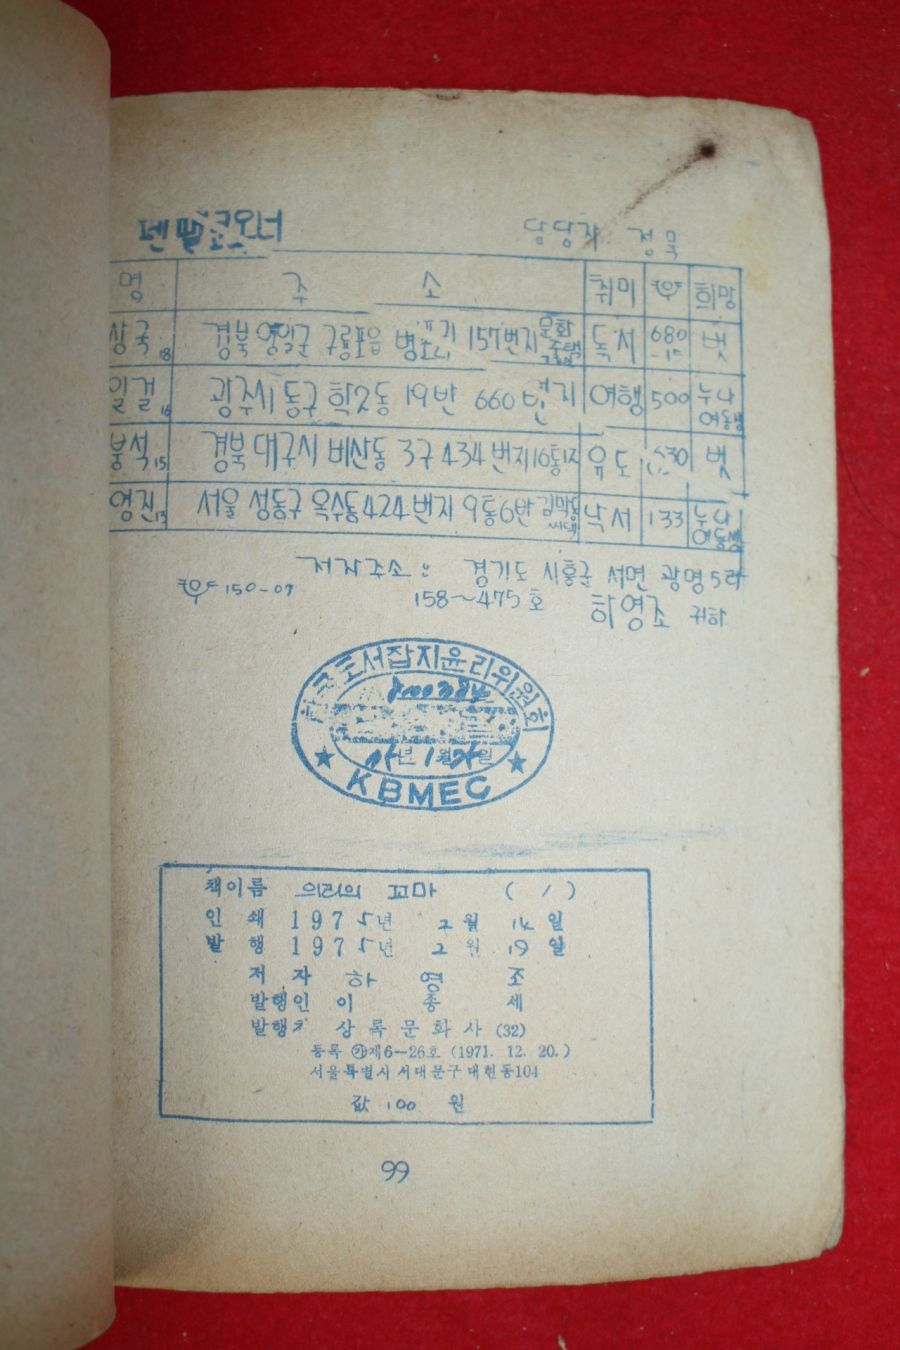 담당자 정묵
명 주 소 취미 ㉾ 희망
상국 18 경북 영일군 구룡포읍 병포기 157번지 문화주택 독서 680-17 벗
일걸 16 광주시 동구 학2동 19반 660번지 여행 500 누나 여동생
붕석 15 경북 대구시 비산동 3구 434번지 16통 유도 630 벗
영진 13 서울 성동구 옥수동 424번지 9통6반 낙서 133 누나 여동생
저자주소 : 경기도 시흥군 서면 광명5리
㉾ 150-07 158~475호 하영조 귀하
한국도서잡지윤리위원회
년 1월 일
★ KBMEC ★
책이름 의리의 꼬마 ( 1 )
인 쇄 1975년 2월 14일
발 행 1975년 2월 19일
저 자 하 영 조
발행인 이 종 세
발행처 상록문화사 (32)
등록 ㉮제6-26호 (1971. 12. 20.)
서울특별시 서대문구 대현동104
값 100 원
99